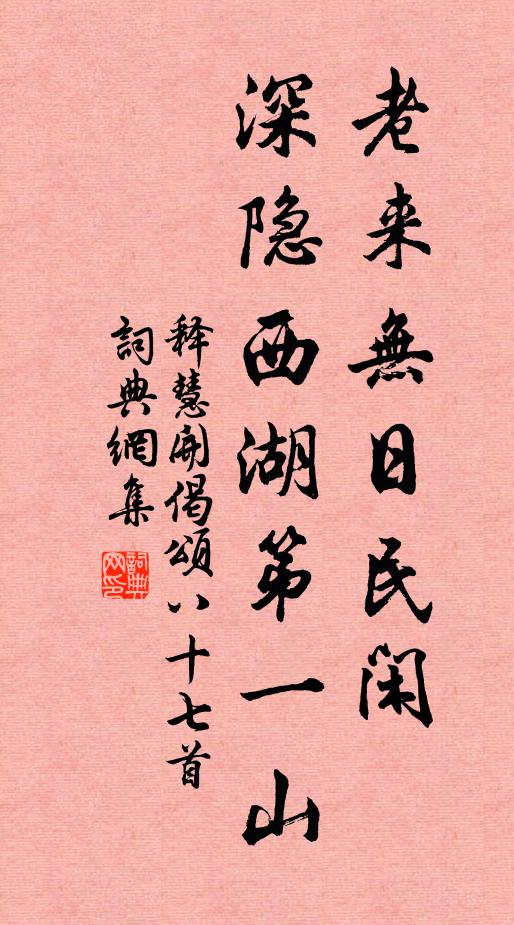 老来無日民闲
深隐西湖第一山
释慧開偈頌八十七首
詞典網集
詞典網印